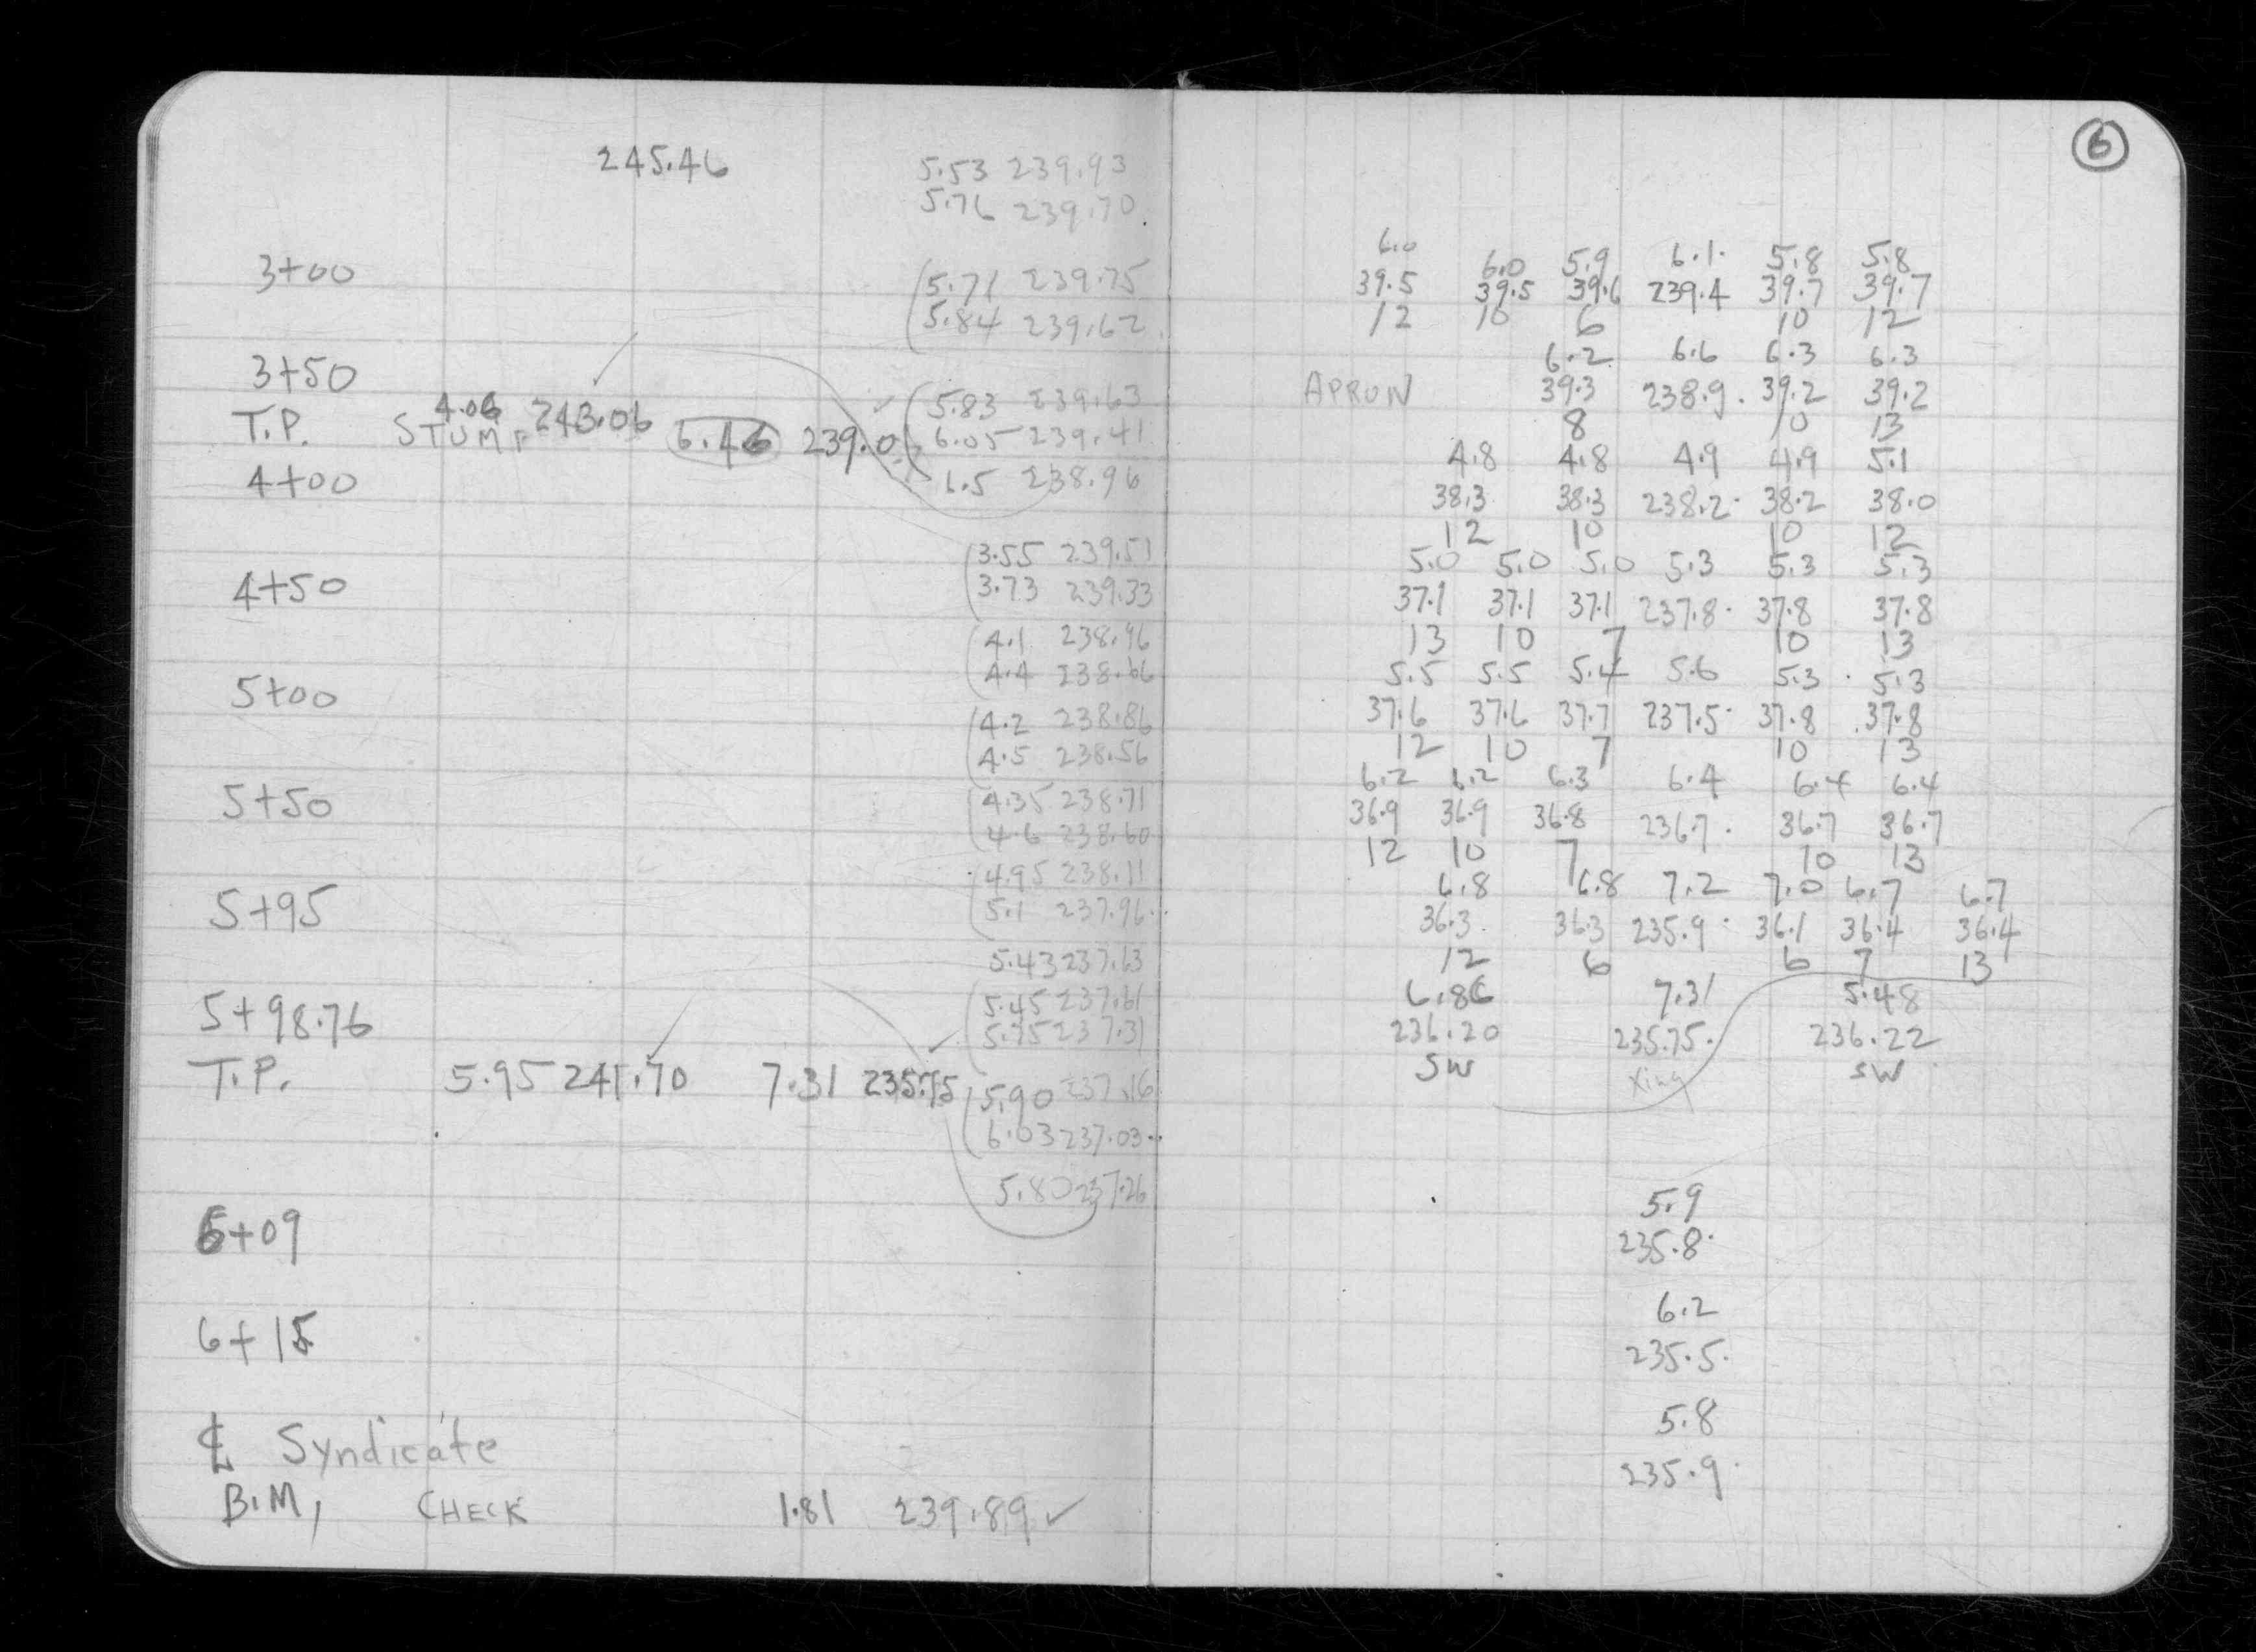 6
245.46 5.53 239.93
5.76 239.70
3+00
(5.71 239.75
5.84 239.62
3+50
(5.83 239.63
T.P. STUMP 4.06 243.06 6.46 239.0
6.05 239.41
4+00 6.5 238.96
(3.55 239.51
4+50 3.73 239.33
(4.1 238.96
4.4 238.66
5+00
(4.2 238.86
4.5 238.56
5+50 (4.35 238.71
4.6 238.60
(4.95 238.11
5+95 5.1 237.96
5.43 237.63
5+98.76 (5.45 237.61
5.75 237.31
T.P. 5.95 241.70 7.31 235.75 (5.90 237.16
6.03 237.03
5.80 237.26
6+09
6+15
℄ Syndicate
B.M, CHECK 1.81 239.89 ✓
6.0 6.0 5.9 6.1 5.8 5.8
39.5 39.5 39.6 239.4 39.7 39.7
12 10 6 10 12
6.2 6.6 6.3 6.3
APRON 39.3 238.9 39.2 39.2
8 10 13
4.8 4.8 4.9 4.9 5.1
38.3 38.3 238.2 38.2 38.0
12 10 10 12
5.0 5.0 5.0 5.3 5.3 5.3
37.1 37.1 37.1 237.8 37.8 37.8
13 10 7 10 13
5.5 5.5 5.4 5.6 5.3 5.3
37.6 37.6 37.7 237.5 37.8 37.8
12 10 7 10 13
6.2 6.2 6.3 6.4 6.4 6.4
36.9 36.9 36.8 236.7 36.7 36.7
12 10 7 10 13
6.8 6.8 7.2 7.0 6.7 6.7
36.3 36.3 235.9 36.1 36.4 36.4
12 6 6 7 13
6.86 7.31 5.48
236.20 235.75 236.22
SW Xing SW
5.9
235.8
6.2
235.5
5.8
235.9